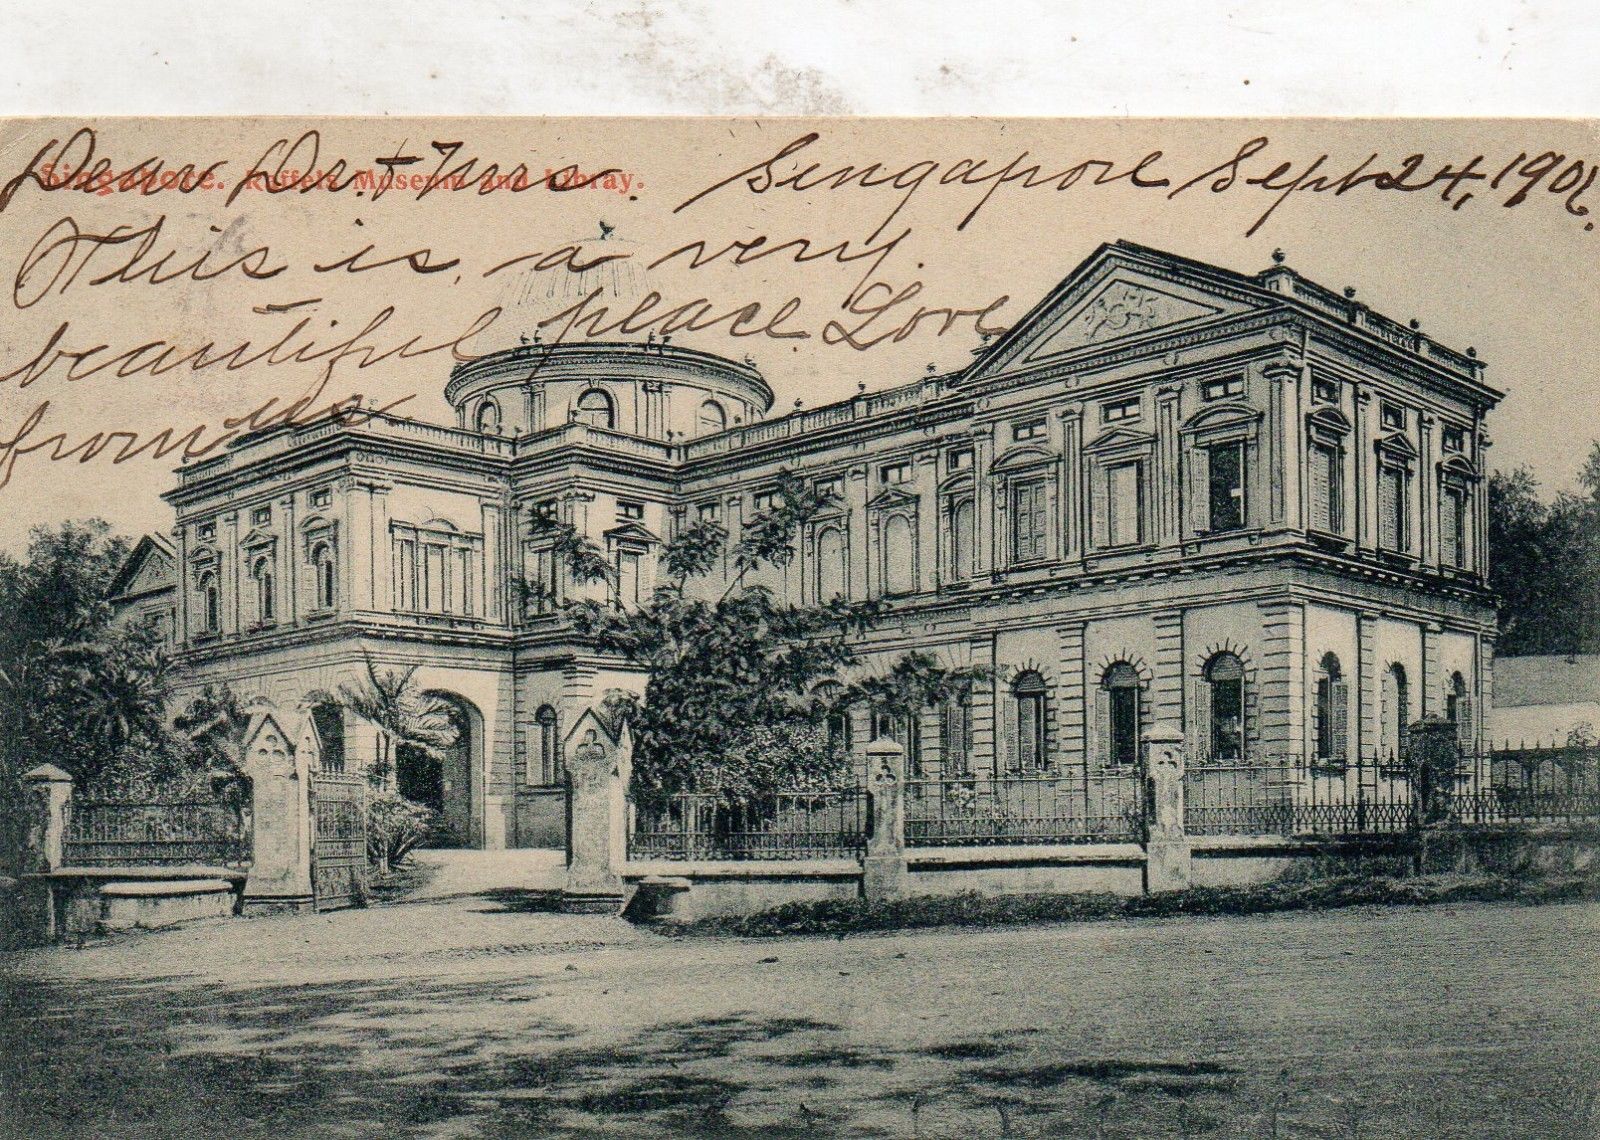 Singapore. Raffels Museum and Libray.
Dear Dr. + Mrs. Singapore Sept 24, 190
This is a very
beautiful place Love
from us